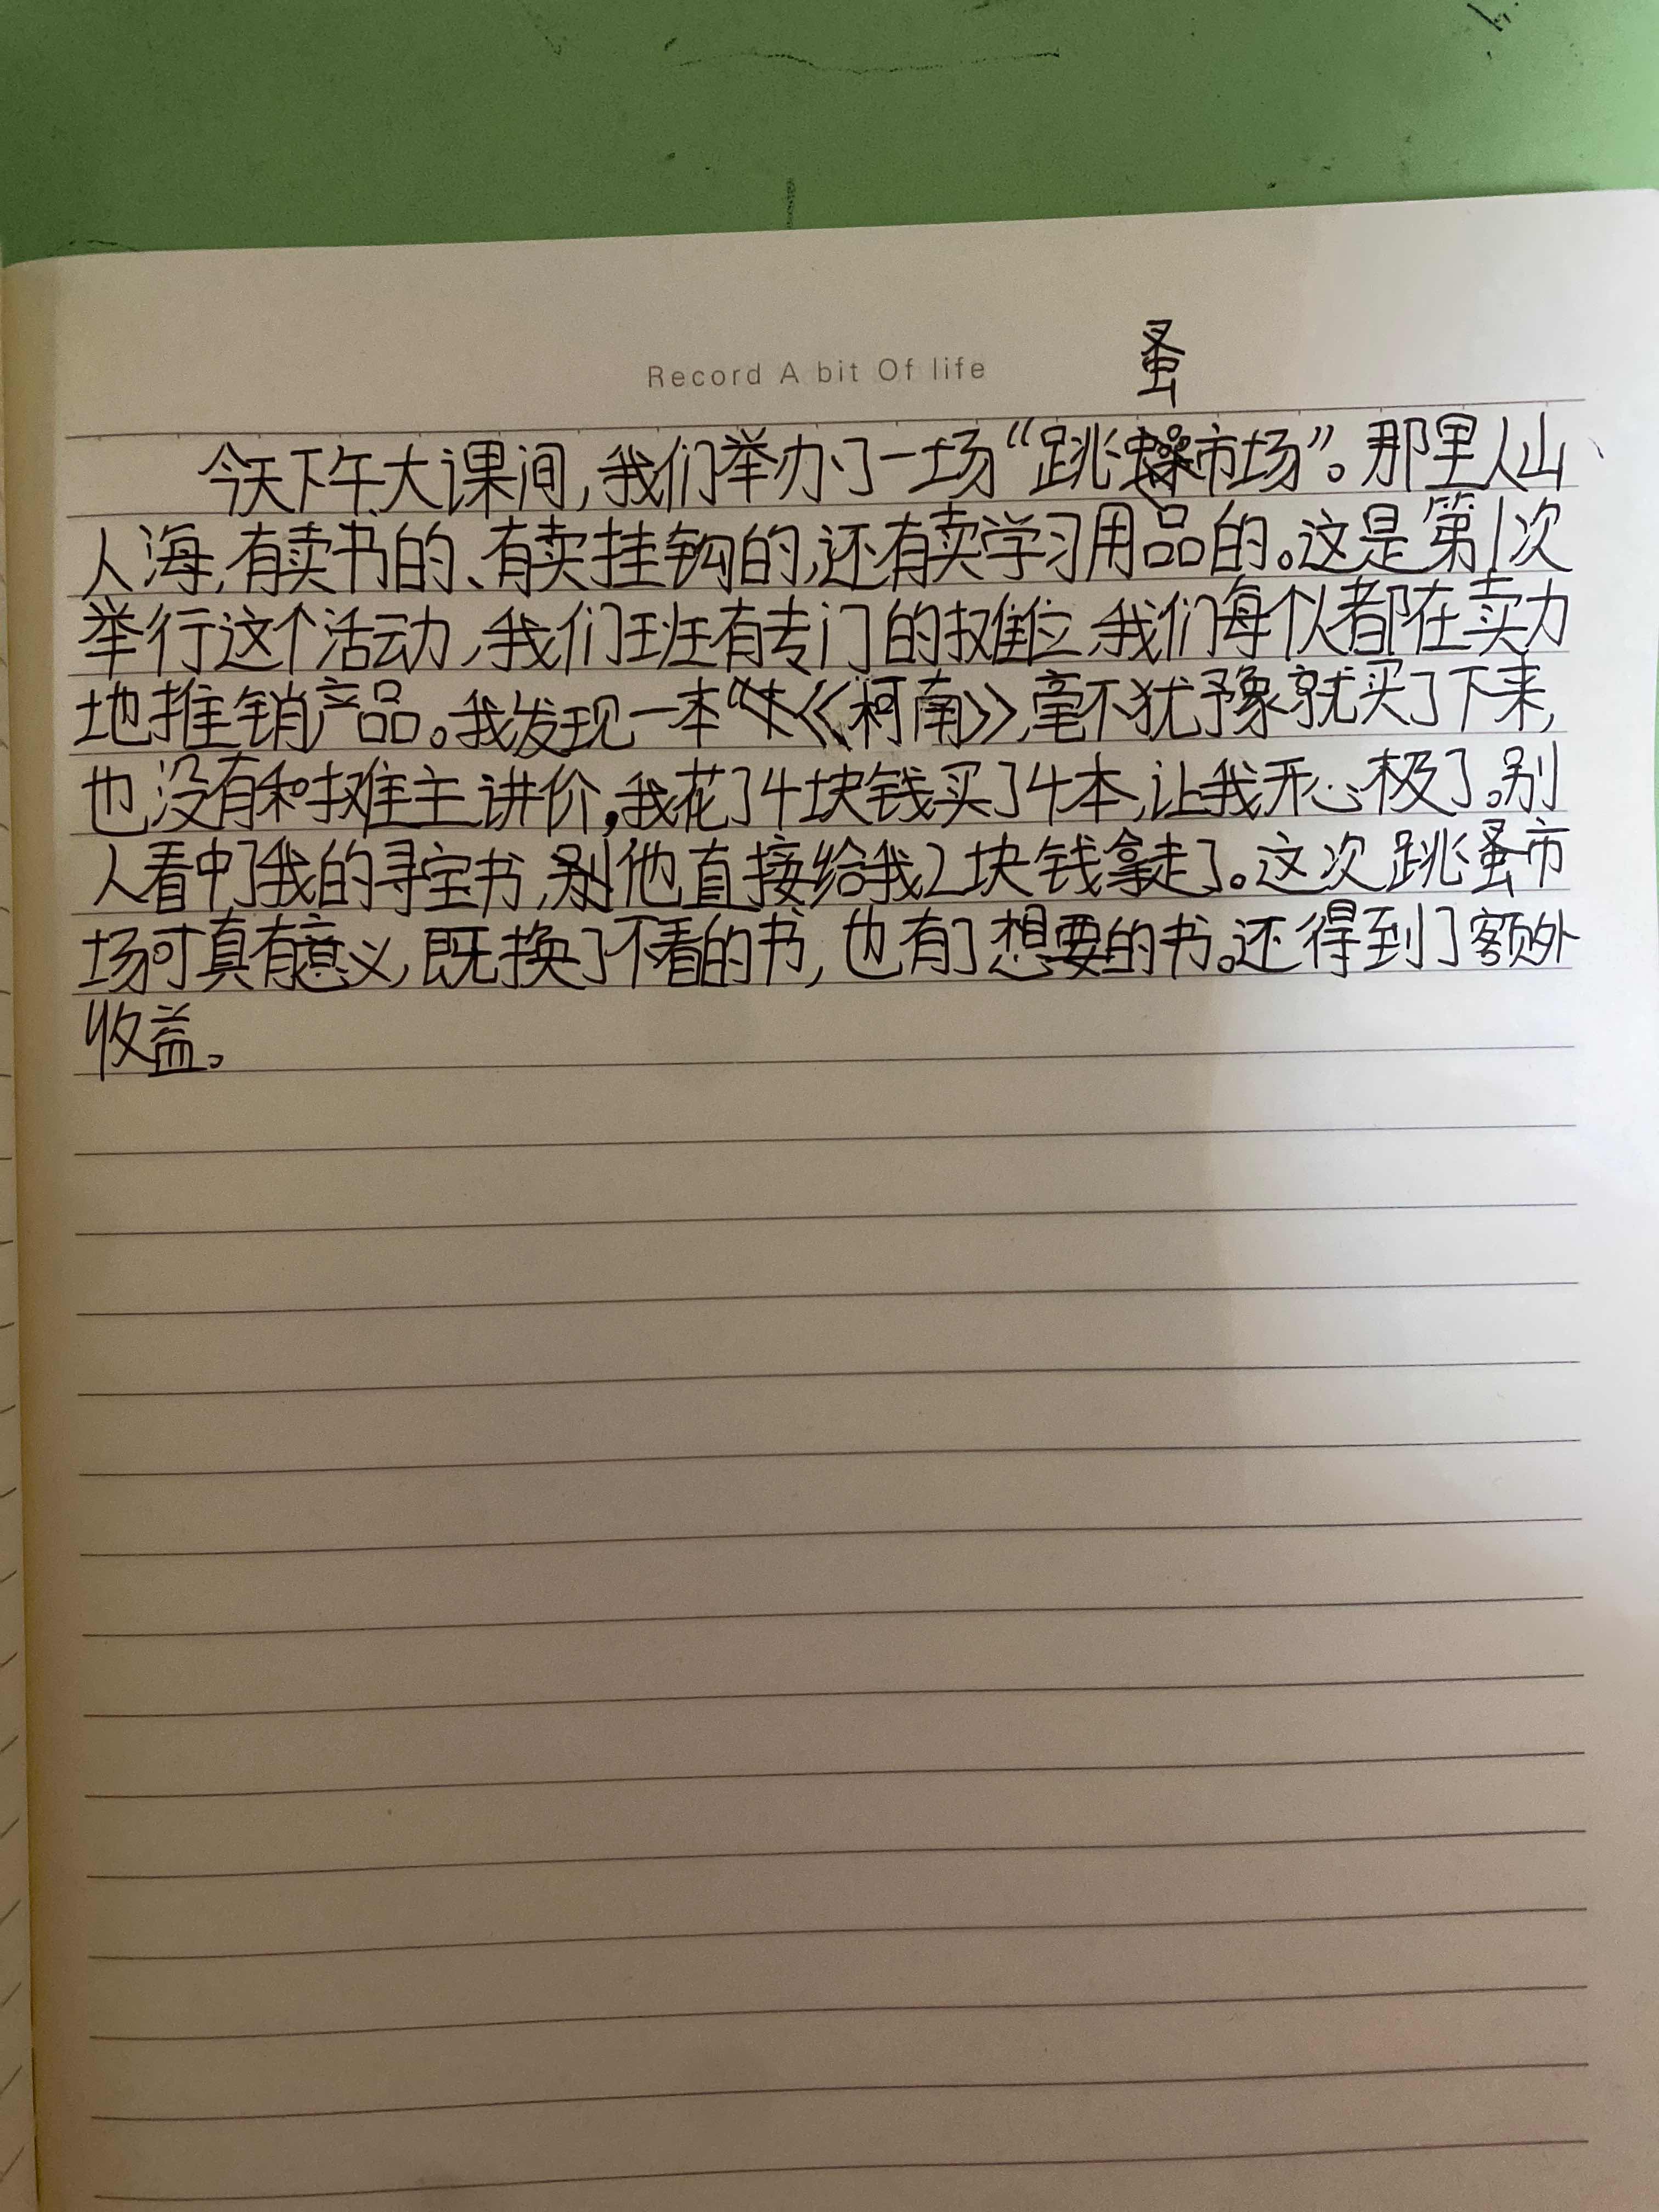 Record A bit Of life
蚤
今天下午大课间,我们举办了一场“跳市场”。那里人山
人海,有卖书的、有卖挂钩的,还有卖学习用品的。这是第1次
举行这个活动,我们班有专门的摊位,我们每个人都在卖力
地推销产品。我发现一本《柯南》,毫不犹予豫就买了下来,
也没有和摊主讲价,我花了4块钱买了4本,让我开心极了。别
人看中了我的寻宝书,他直接给我2块钱拿走了。这次跳蚤市
场可真有意义,既换了不看的书,也有了想要的书。还得到了额外
收益。